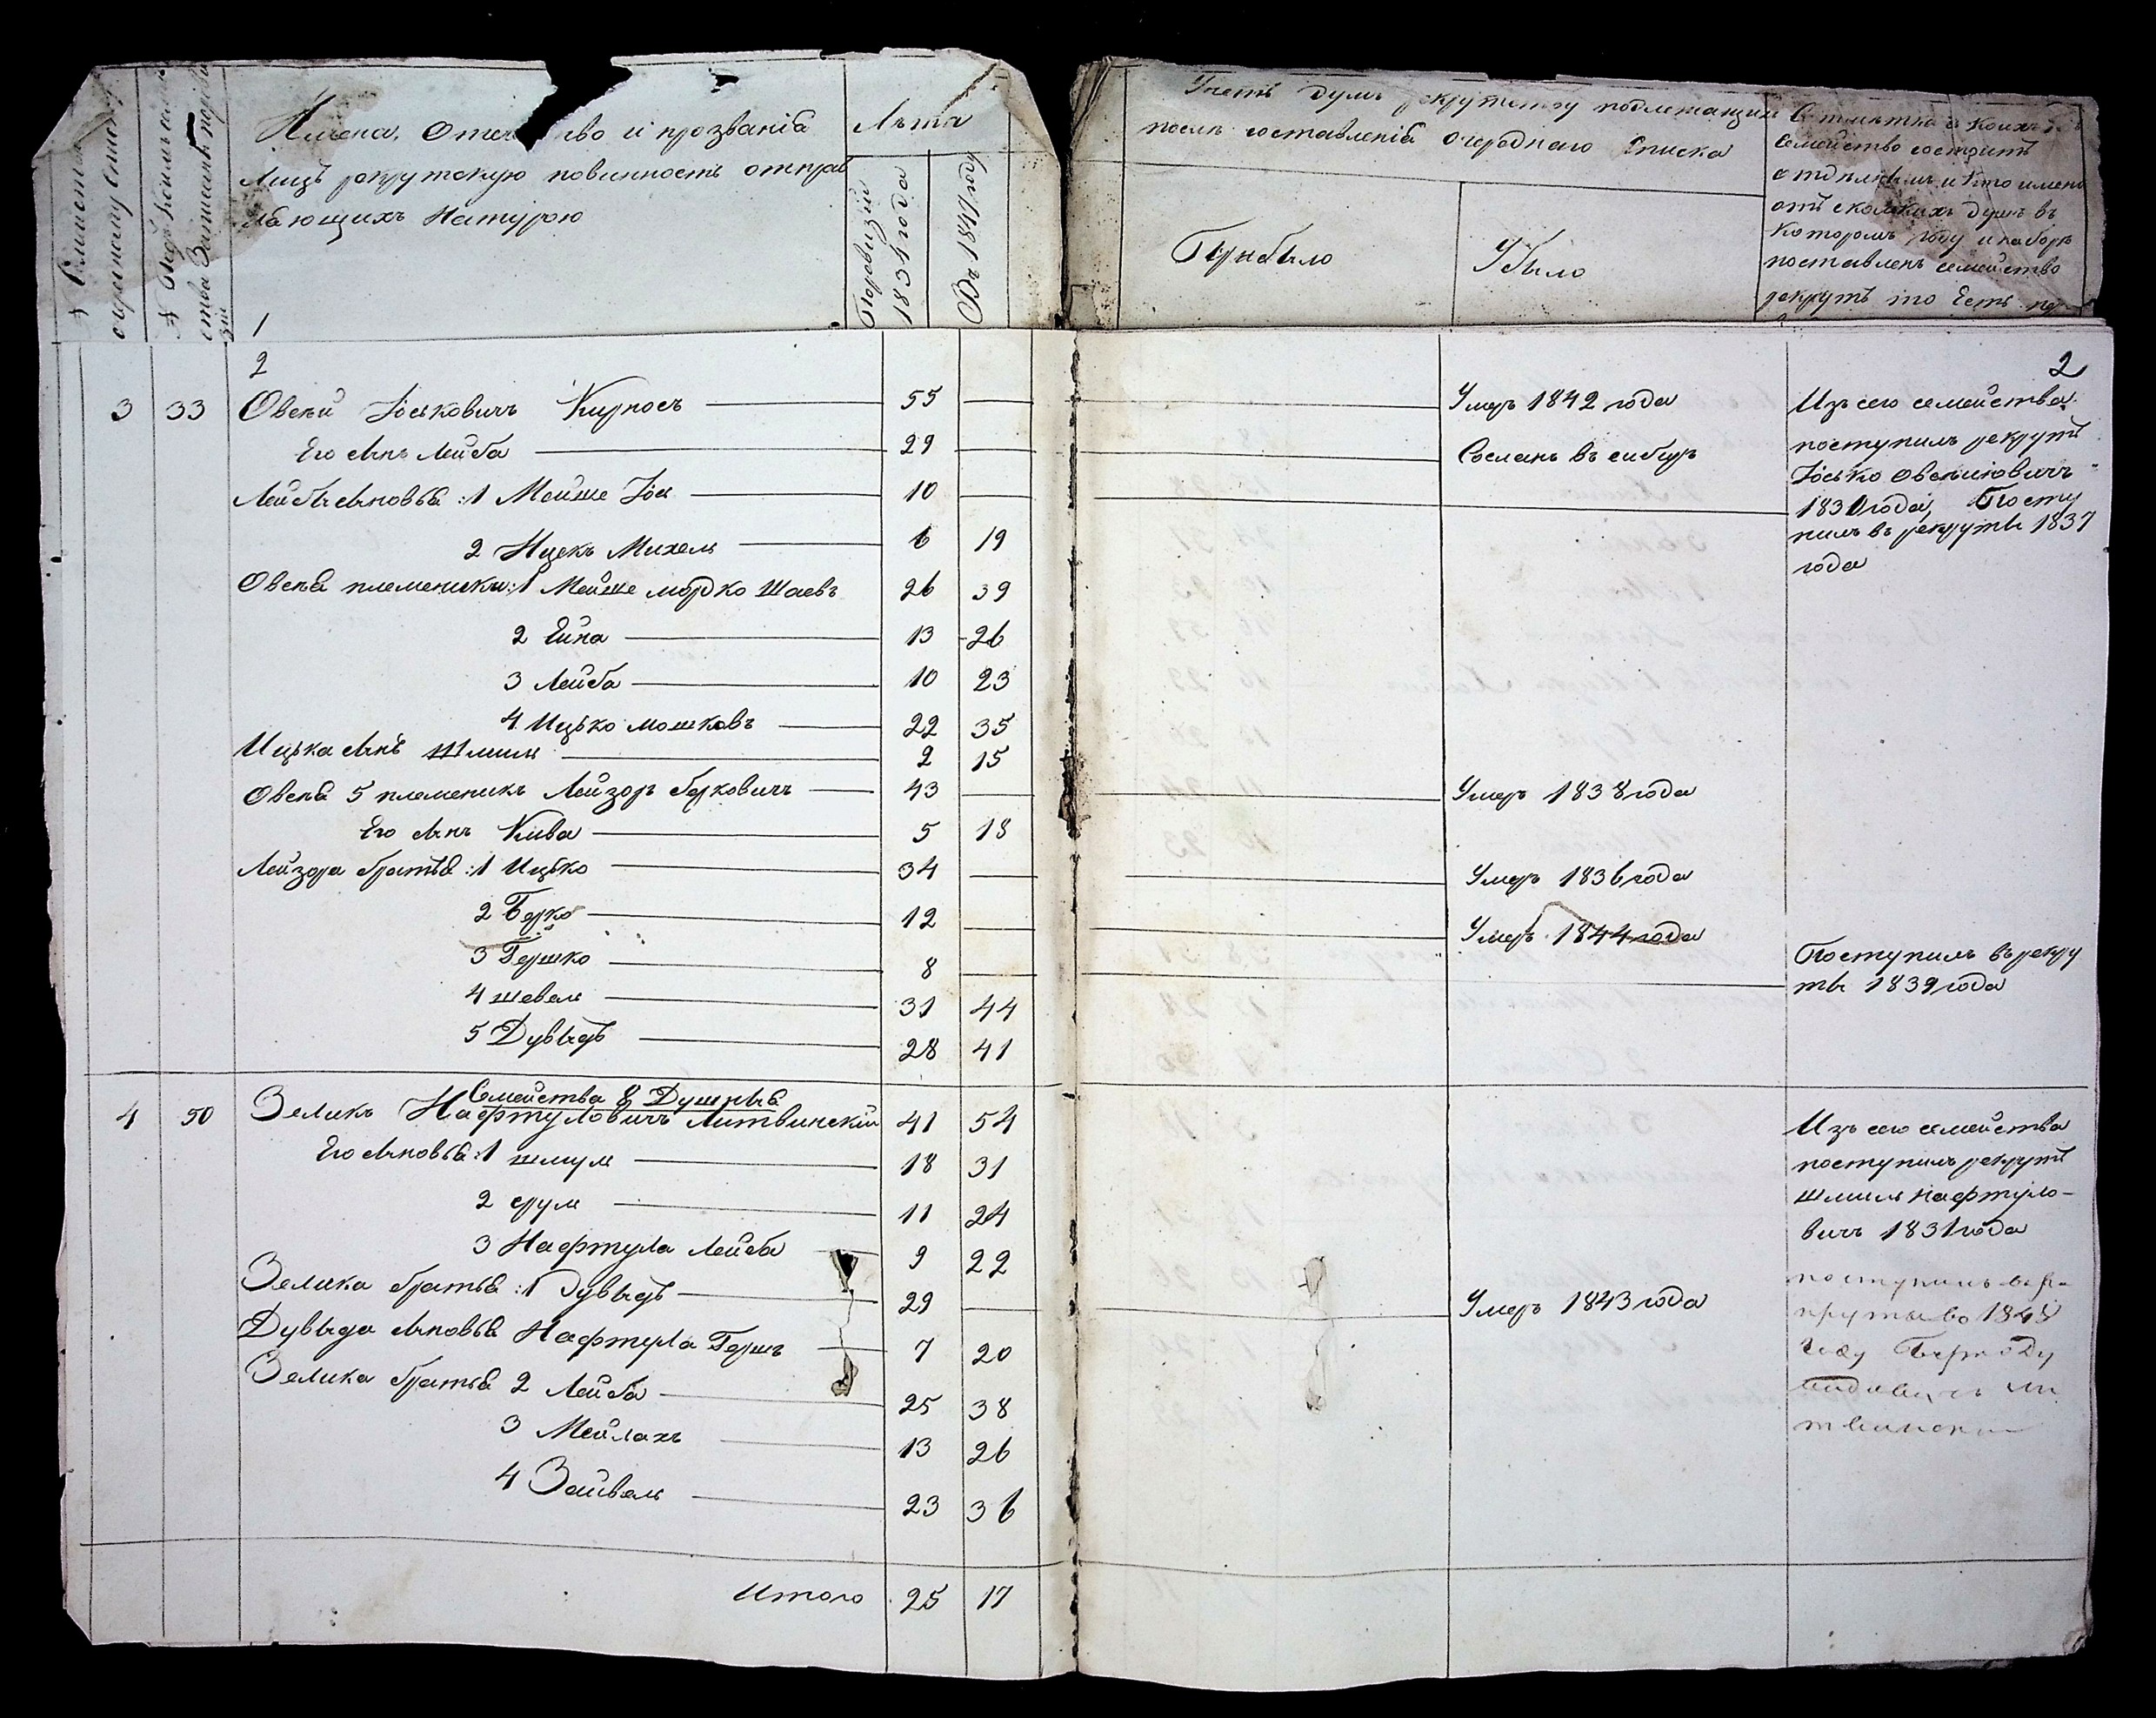 Имена, Отечество и прозванія
Лицъ рекрутскую повинность отправ
ляющихъ Натурою
Лѣта
По ревизіи 1834 года
Въ 1847 году
Счетъ душъ рекрутству подлежащихъ
послѣ составленія Очереднаго Списка
Прибыло
Убыло
семейство состоитъ
отдѣльнымъ и кто имено
отъ сколькихъ душъ въ
которомъ году и наборѣ
поставленъ семейство
рекрутъ то есть
1
2
2
3 33 Овсѣй Іоськовичъ Кирносъ 55 Умеръ 1842 года
Изъ сего семейства
поступилъ рекрутъ
Іосько Овсѣиовичъ
1831 года, Посту
пилъ въ рекруты 1837
года
Его сынъ Лейба 29 Сосланъ въ сибирь
Лейбы сыновья: 1 Мойше Іос 10
2 Ицекъ Михель 6 19
Овсѣя племеники: 1 Мойше мордко Шаевъ 26 39
2 Ейна 13 26
3 Лейба 10 23
4 Ицько мошковъ 22 35
Ицька сынъ Шмиль 2 15
Овсѣя 5 племеникъ Лейзоръ берковичъ 43 Умеръ 1838 года
Его сынъ Кива 5 18
Лейзора братья: 1 Ицько 34 Умеръ 1836 года
2 Берко 12 Умеръ 1844 года
3 Гершко 8 Поступилъ въ рекру
ты 1839 года
4 шевель 31 44
5 Дувыдъ 28 41
Семейства 8 Душныя
4 50 Зеликъ Нафтуловичъ Литвинскій 41 54
Изъ сего семейства
поступилъ рекрутъ
шмиль нафтуло-
вичъ 1831 года
поступилъ въ ре
круты во 1848
году Берко Ду
видовичъ Ли
твински
Его сыновья: 1 шмул 18 31
2 срул 11 24
3 Нафтула Лейба 9 22
Зелика братья: 1 Дувыдъ 29 Умеръ 1843 года
Дувыда сыновья Нафтула Гершъ 7 20
Зелика братья 2 Лейба 25 38
3 Мейлахъ 13 26
4 Зайвель 23 36
Итого 25 17